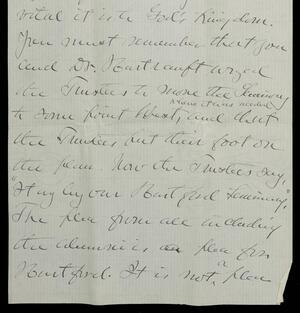 vital it is to God's Kingdom.
You must remember that you
and Dr. Hartranft urged
the Trustees to move the Seminary
where it was needed
to some point West, and that
the Trustees put their foot on
the plan. Now the Trustees say,
"Hang by our Hartford Seminary",
The plea from all including
the alumni is a plea for
Hartford. It is not a plea